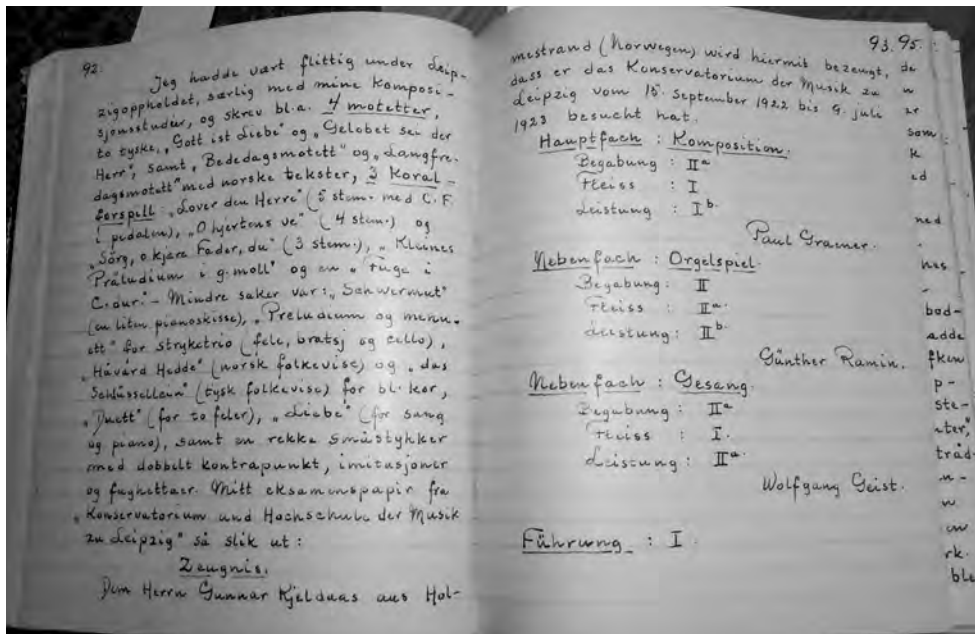 92.
Jeg hadde vært flittig under Leip-
zigoppholdet, særlig med mine komposi-
sjonsstudier, og skrev bl.a. 4 motetter,
to tyske, „Gott ist Liebe" og „Gelobet sei der
Herr", samt „Bededagsmotett" og „Langfre-
dagsmotett" med norske tekster, 3 Koral-
forspill: „Lover den Herre" (5 stem. med C.F.
i pedalen), „O hjertens ve" (4 stem.) og
„Sørg, o kjære Fader, du" (3 stem.), „Kleines
Präludium i g-moll" og en „Fuge i
C.dur." – Mindre saker var: „Schwermut"
(en liten pianoskisse), „Preludium og menu-
ett" for stryketrio (fele, bratsj og cello),
„Håvård Hedde" (norsk folkevise) og „das
Schlüsselein" (tysk folkevise) for bl. kor,
„Duett" (for to feler), „Liebe" (for sang
og piano), samt en rekke småstykker
med dobbelt kontrapunkt, imitasjoner
og fughettaer. Mitt eksamenspapir fra
„Konservatorium und Hochschule der Musik
zu Leipzig" så slik ut:
Zeugnis.
Dem Herrn Gunnar Kjelduas aus Hol-
93.
mestrand (Norwegen) wird hiermit bezeugt,
dass er das Konservatorium der Musik zu
Leipzig vom 15. September 1922 bis 9. juli
1923 besucht hat.
Hauptfach : Komposition.
Begabung : IIa
Fleiss : I
Leistung : Ib.
Paul Graener.
Nebenfach : Orgelspiel.
Begabung : II
Fleiss : IIa.
Leistung : IIb.
Günther Ramin.
Nebenfach : Gesang.
Begabung : IIa
Fleiss : I.
Leistung : IIa.
Wolfgang Geist.
Führung : I.
95.
de
n
er
som
k
ed
ned
hos
bod-
adde
fken
p-
ste-
nter,"
tråd-
n-
w
un
rk.
ble